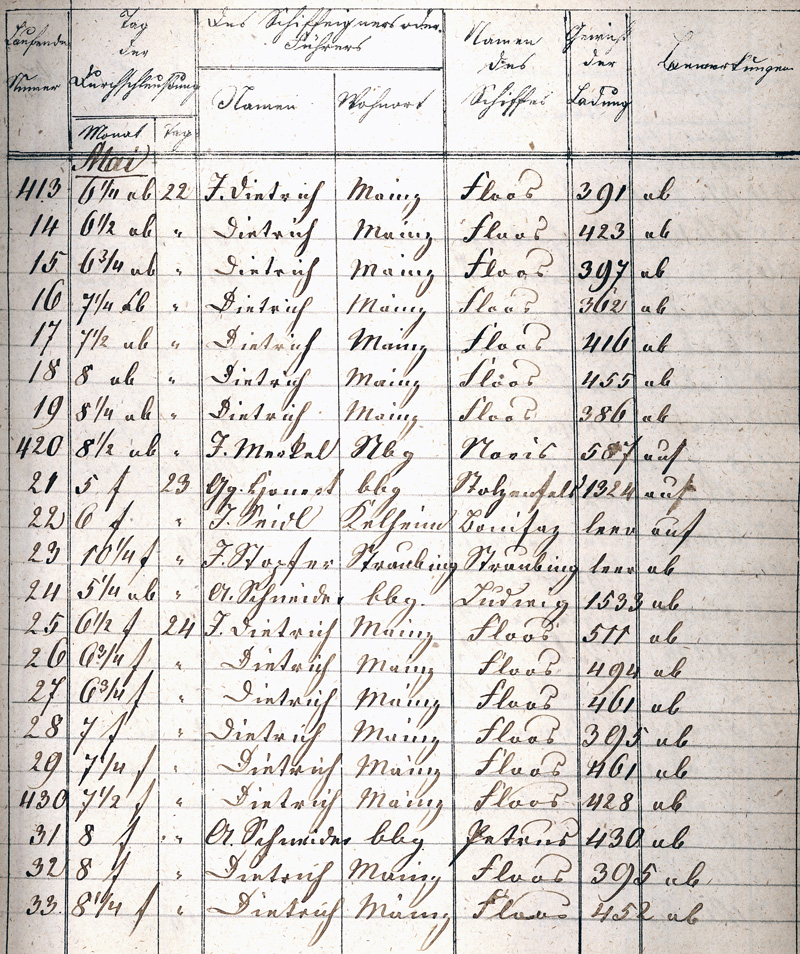 Laufende Numer
Tag der Durchschleußung
Des Schiffeigners oder Führers
Namen des Schiffes
Gewicht der Ladung
Bemerkungen
Monat Tag Namen Wohnort
Mai
413 6 1/4 ab 22 J. Dietrich Mainz Floos 391 ab
14 6 1/2 ab " Dietrich Mainz Floos 423 ab
15 6 3/4 ab " Dietrich Mainz Floos 397 ab
16 7 1/4 ab " Dietrich Mainz Floos 362 ab
17 7 1/2 ab " Dietrich Mainz Floos 416 ab
18 8 ab " Dietrich Mainz Floos 455 ab
19 8 1/4 ab " Dietrich Mainz Floos 386 ab
420 8 1/2 ab " J. Merkel Nbg Noris 507 auf
21 5 f 23 Gg. bbg Stolzenfels 1324 auf
22 6 f " J. Seidl Kelheim Bonifaz leer auf
23 10 1/4 f " J. Stopfer Straubing Straubing leer ab
24 5 1/4 ab " A. Schneider bbg. Ludwig 1533 ab
25 6 1/2 f 24 J. Dietrich Mainz Floos 511 ab
26 6 3/4 f " Dietrich Mainz Floos 494 ab
27 6 3/4 f " Dietrich Mainz Floos 461 ab
28 7 f " Dietrich Mainz Floos 395 ab
29 7 1/4 f " Dietrich Mainz Floos 461 ab
430 7 1/2 f " Dietrich Mainz Floos 428 ab
31 8 f " A. Schneider bbg Petrus 430 ab
32 8 f " Dietrich Mainz Floos 395 ab
33. 8 1/4 f " Dietrich Mainz Floos 452 ab